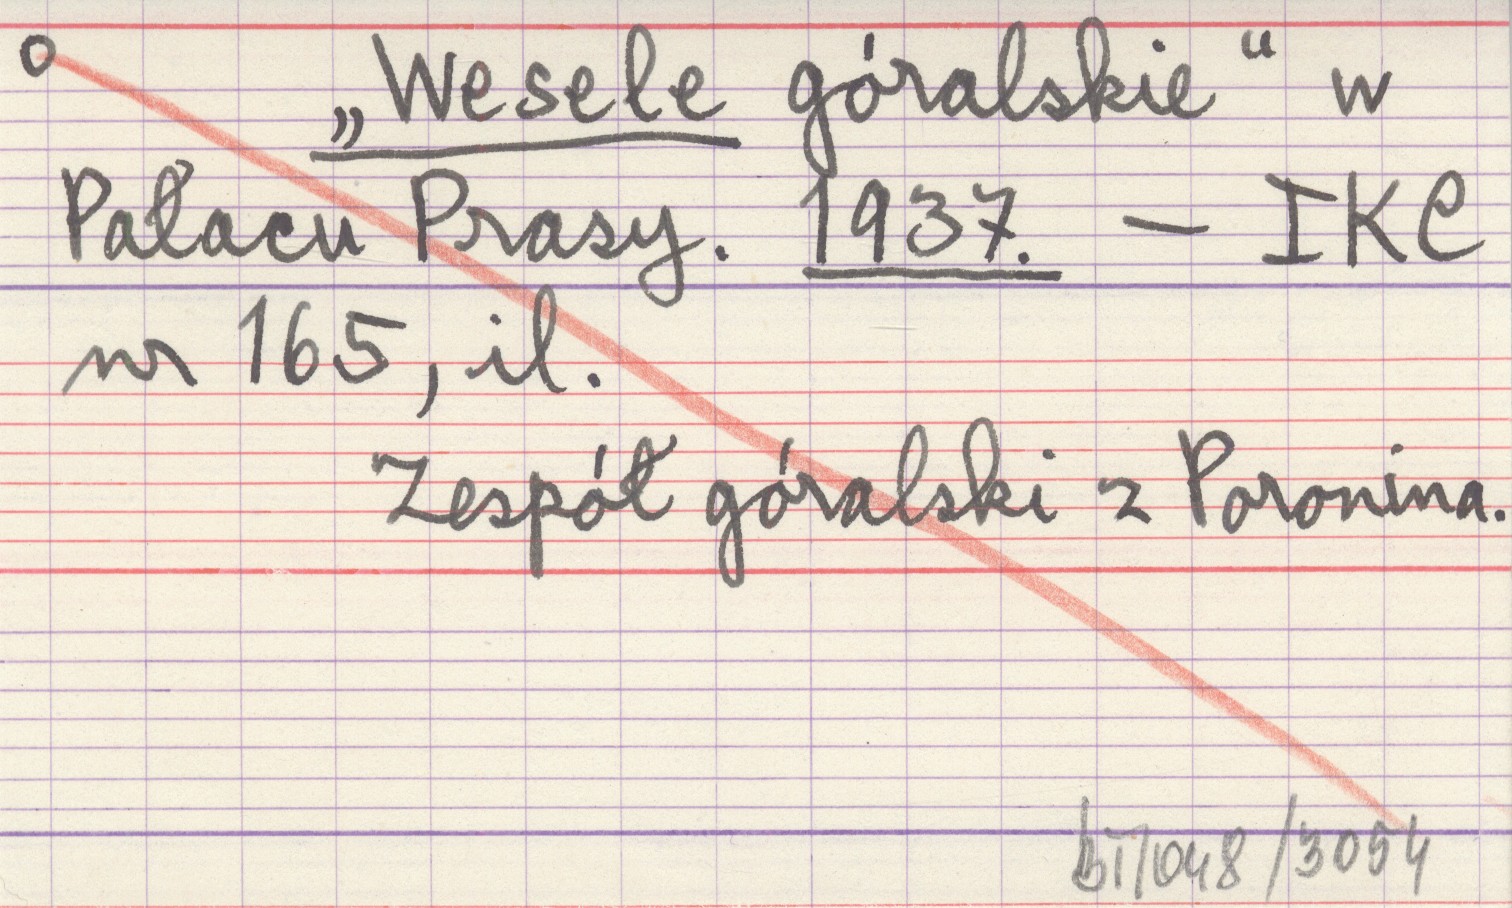 o „Wesele góralskie“ w
Pałacu Prasy. 1937. — IKC
nr 165, il.
Zespół góralski z Poronina.
bT/048/3054